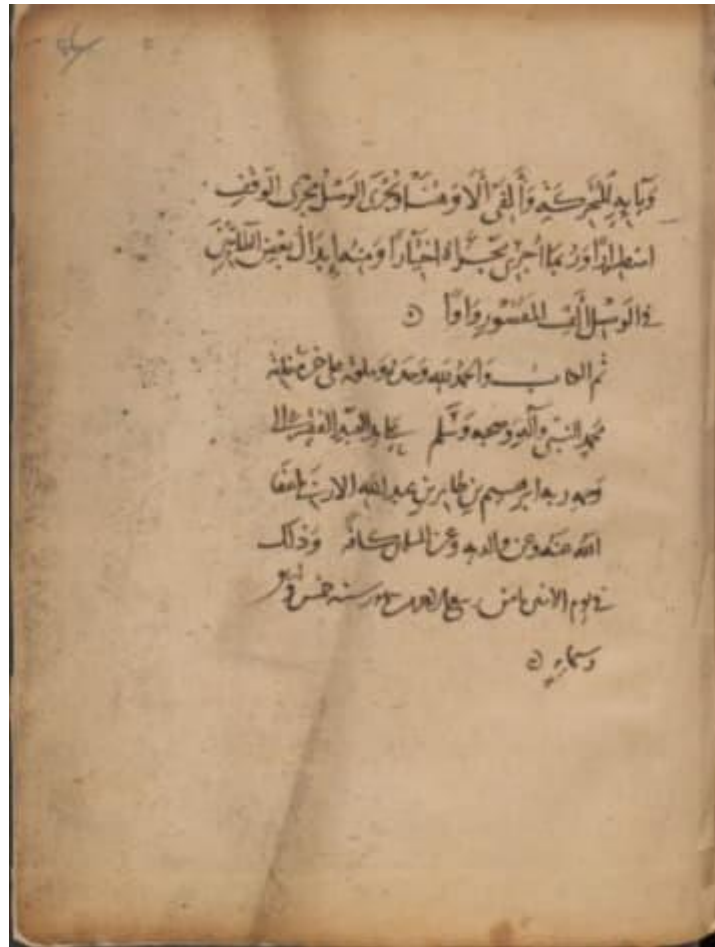 وبابه للحركة وألفى ألا وهنا ويجرى الوصل مجرى الوقف
اضطرارا وربما أجري مجراه اختيارا ومنها إبدال بعض الطائيين
في الوصل ألف المقصور واوا
تم الكتاب والحمد لله وحده وصلوته على خير خلقه
محمد النبي وآله وصحبه وسلم على يد العبد الفقير الى
ربه ابرهيم بن طاهر بن عبد الله عفا
الله عنه وعن والديه وعن المسلمين كافة وذلك
في يوم الاثنين ثامن ربيع سنة خمس